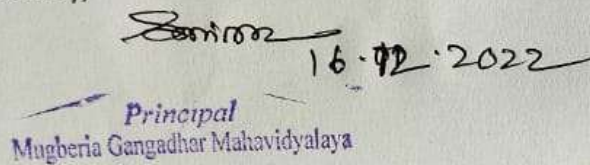 16.12.2022
Principal
Mugberia Gangadhar Mahavidyalaya